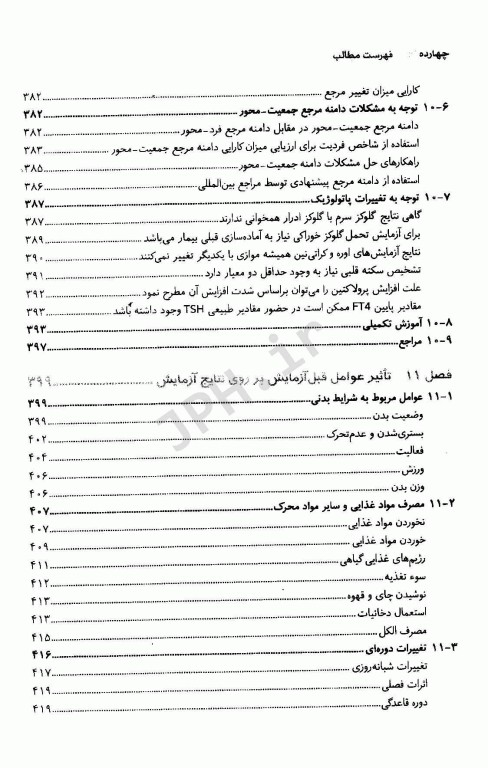 چهارده فهرست مطالب
کارایی میزان تغییر مرجع ۳۸۲
۱۰-۶ توجه به مشکلات دامنه مرجع جمعیت-محور ۳۸۲
دامنه مرجع جمعیت-محور در مقابل دامنه مرجع فرد-محور ۳۸۲
استفاده از شاخص فردیت برای ارزیابی میزان کارائی دامنه مرجع جمعیت-محور ۳۸۳
راهکارهای حل مشکلات دامنه جمعیت-محور ۳۸۵
استفاده از دامنه مرجع پیشنهادی توسط مراجع بین‌المللی ۳۸۶
۱۰-۷ توجه به تغییرات پاتولوژیک ۳۸۷
گاهی نتایج گلوکز سرم با گلوکز ادرار همخوانی ندارند ۳۸۷
برای آزمایش تحمل گلوکز خوراکی نیاز به آماده‌سازی قبلی بیمار می‌باشد ۳۸۹
نتایج آزمایش‌های اوره و کراتی‌نین همیشه موازی با یکدیگر تغییر نمی‌کنند ۳۹۰
تشخیص سکته قلبی نیاز به وجود حداقل دو معیار دارد ۳۹۱
علت افزایش پرولاکتین را می‌توان براساس شدت افزایش آن مطرح نمود ۳۹۲
مقادیر پایین FT4 ممکن است در حضور مقادیر طبیعی TSH وجود داشته باشد ۳۹۳
۱۰-۸ آموزش تکمیلی ۳۹۳
۱۰-۹ مراجع ۳۹۷
فصل ۱۱ تأثیر عوامل قبل‌آزمایش بر روی نتایج آزمایش ۳۹۹
۱۱-۱ عوامل مربوط به شرایط بدنی ۳۹۹
وضعیت بدن ۳۹۹
بستری‌شدن و عدم‌تحرک ۴۰۲
فعالیت ۴۰۴
ورزش ۴۰۶
وزن بدن ۴۰۶
۱۱-۲ مصرف مواد غذایی و سایر مواد محرک ۴۰۷
نخوردن مواد غذایی ۴۰۷
خوردن مواد غذایی ۴۰۹
رژیم‌های غذایی گیاهی ۴۱۱
سوء تغذیه ۴۱۲
نوشیدن چای و قهوه ۴۱۳
استعمال دخانیات ۴۱۳
مصرف الکل ۴۱۵
۱۱-۳ تغییرات دوره‌ای ۴۱۶
تغییرات شبانه‌روزی ۴۱۷
اثرات فصلی ۴۱۹
دوره قاعدگی ۴۱۹
JPH.ir